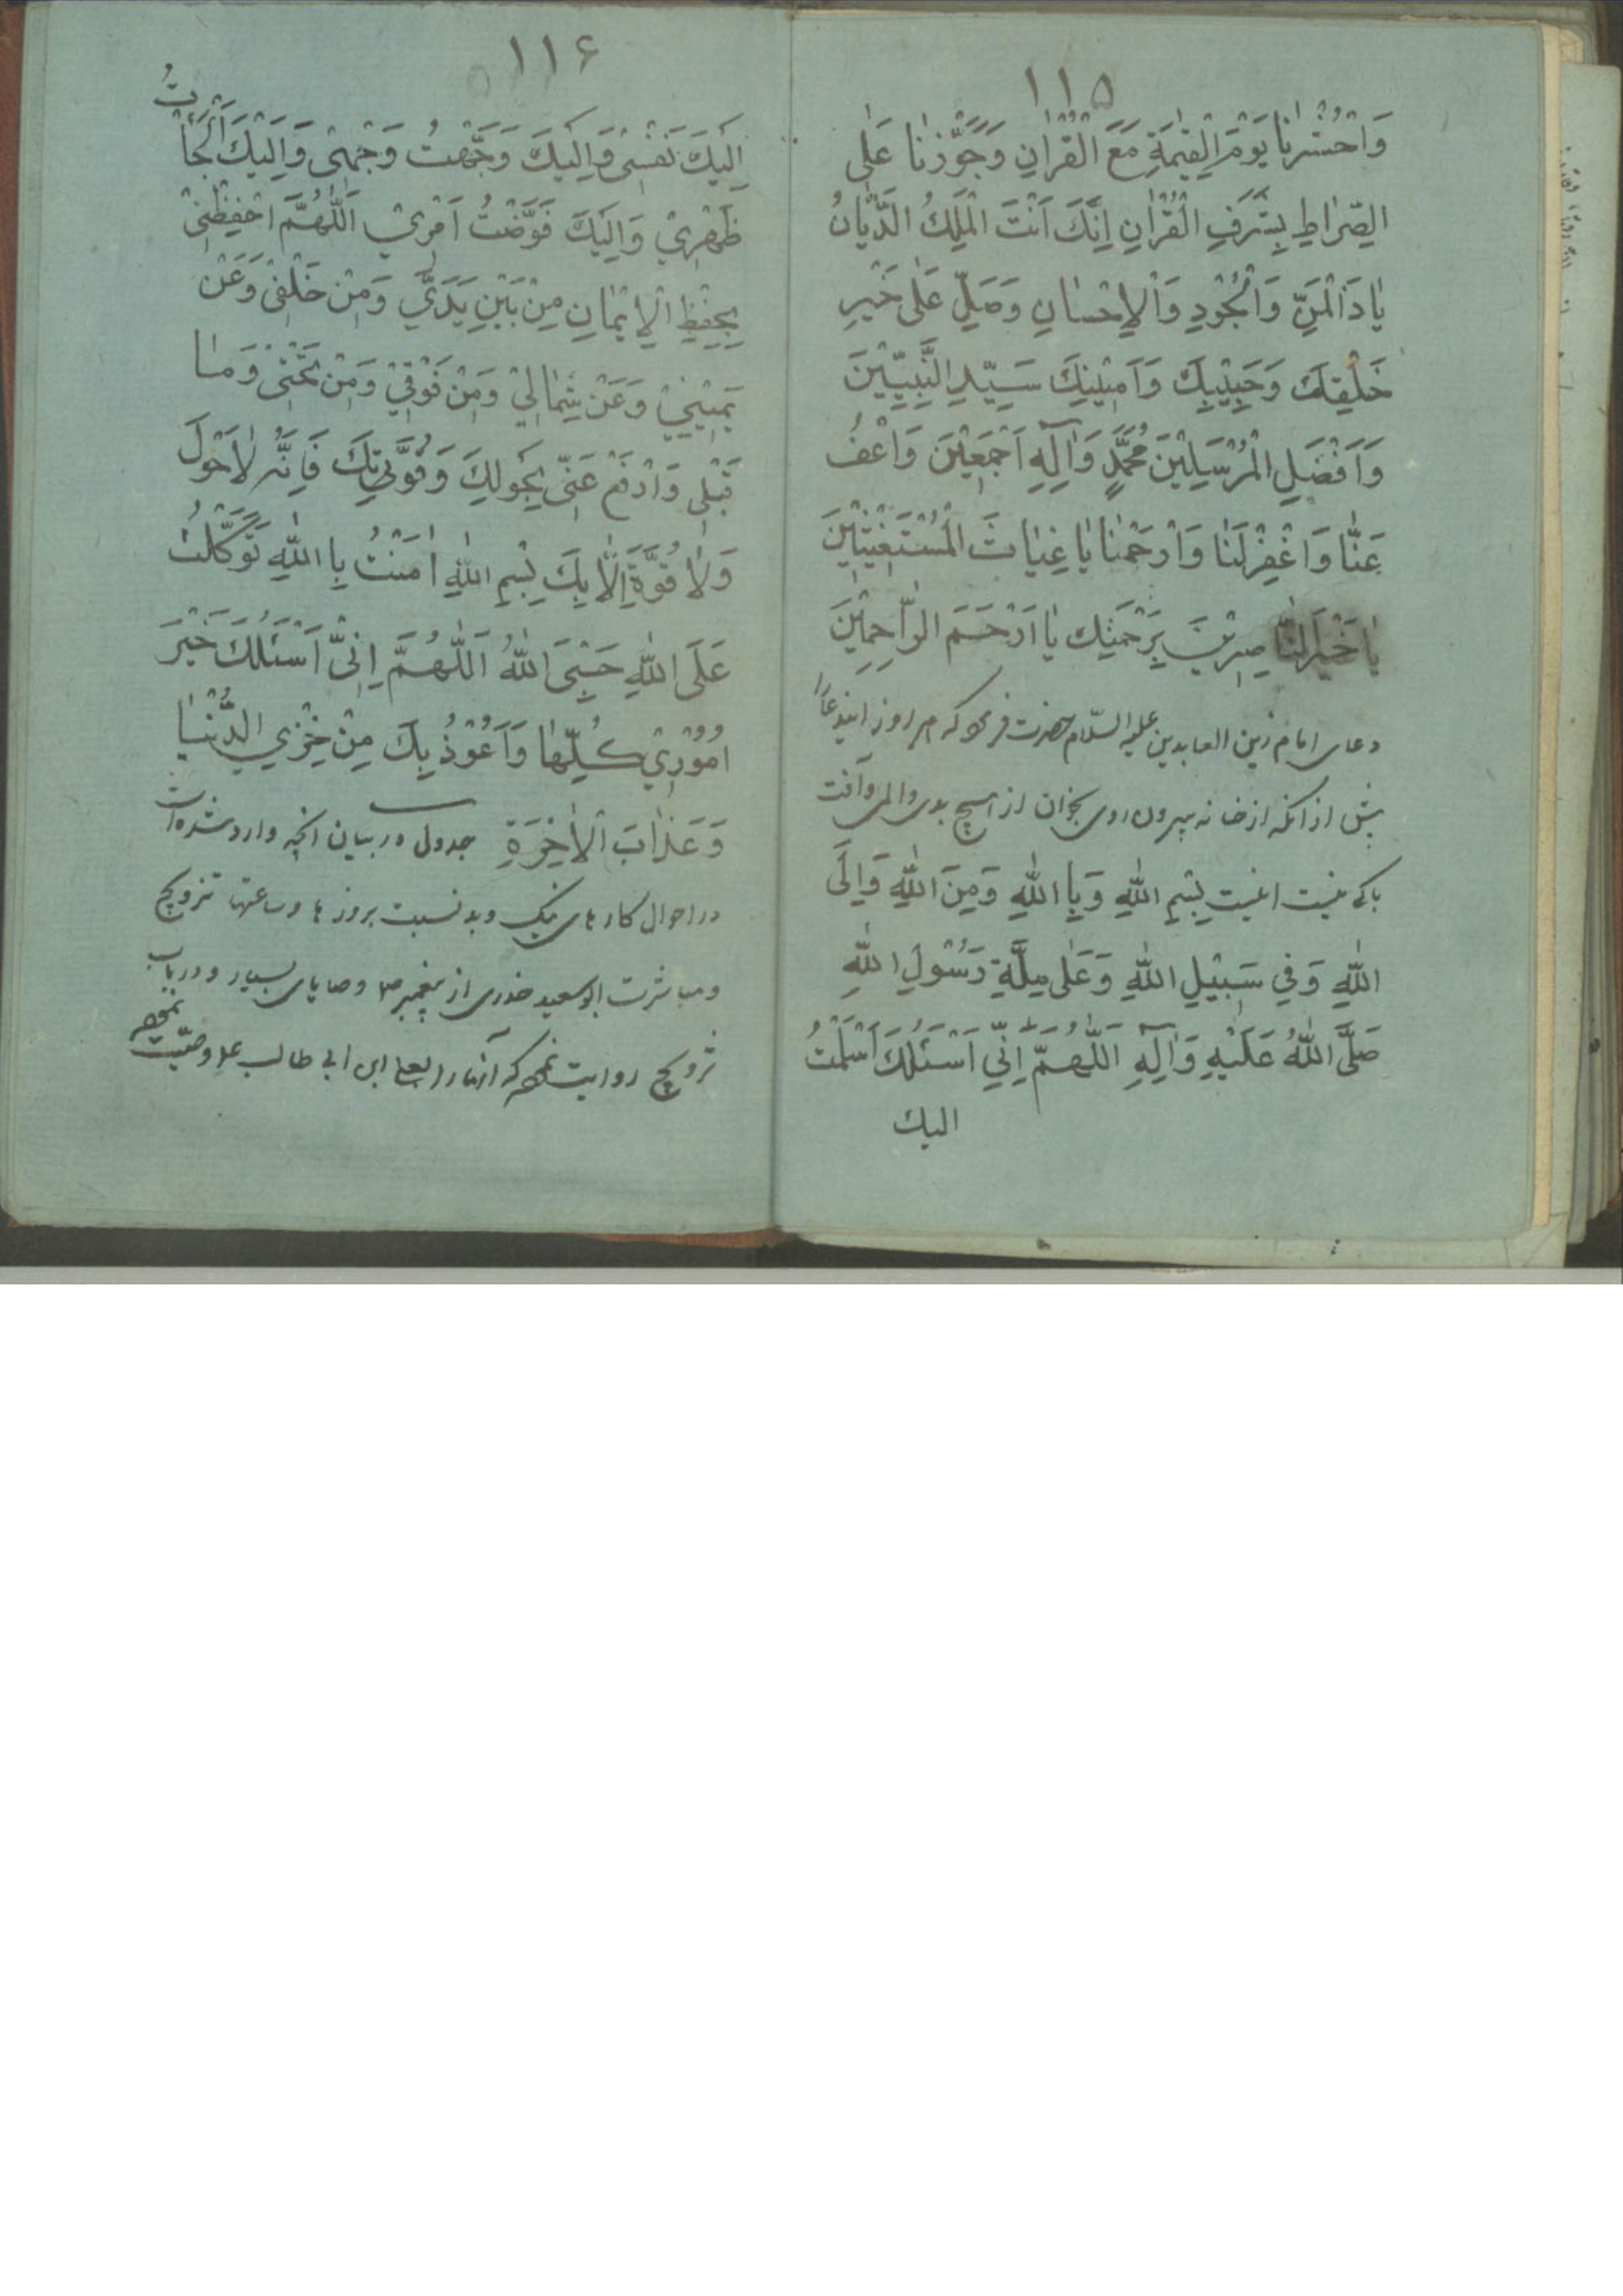 ۱۱۵
وَاحْشُرْنا يَوْمَ الْقِيٰمَةِ مَعَ الْقُرْاٰنِ وَجَوِّزْنا عَلٰى
الصِّراطِ بِشَرَفِ الْقُرْاٰنِ اِنَّكَ اَنْتَ الْمَلِكُ الدَّيّانُ
يا ذَا الْمَنِّ وَالْجُوْدِ وَالْاِحْسانِ وَصَلِّ عَلٰى خَيْرِ
خَلْقِكَ وَحَبِيْبِكَ وَاَمِيْنِكَ سَيِّدِ النَّبِيّيْنَ
وَاَفْضَلِ الْمُرْسَلِيْنَ مُحَمَّدٍ وَاٰلِهِ اَجْمَعِيْنَ وَاعْفُ
عَنّا وَاغْفِرْلَنا وَارْحَمْنا يا غِياثَ الْمُسْتَغِيْثِيْنَ
يا خَيْرَ النّاصِرِيْنَ بِرَحْمَتِكَ يا اَرْحَمَ الرّاحِمِيْنَ
دعاى امام زين العابدين عليه السّلام حضرت فرمود كه هر روز ايندعا را
پيش از آنكه از خانه بيرون روى بخوان از هيچ بدى والمى وآفت
باكى نيست اينست بِسْمِ اللّٰهِ وَبِا اللّٰهِ وَمِنَ اللّٰهِ وَاِلَى
اللّٰهِ وَفِي سَبِيْلِ اللّٰهِ وَعَلٰى مِلَّةِ رَسُوْلِ اللّٰهِ
صَلَّى اللّٰهُ عَلَيْهِ وَاٰلِهِ اَللّٰهُمَّ اِنِّي اَسْئَلُكَ اَسْلَمْتُ
اليك
۱۱۶
اِلَيْكَ نَفْسِىْ وَاِلَيْكَ وَجَّهْتُ وَجْهِىْ وَاِلَيْكَ اَلْجَأْتُ
ظَهْرِيْ وَاِلَيْكَ فَوَّضْتُ اَمْرِيْ اَللّٰهُمَّ احْفِظْنِىْ
بِحِفْظِ الْاِيْمانِ مِنْ بَيْنِ يَدَيَّ وَمِنْ خَلْفِىْ وَعَنْ
يَمِيْنِيْ وَعَنْ شِمالِيْ وَمِنْ فَوْقِيْ وَمِنْ تَحْتِىْ وَما
قَبْلِى وَادْفَعْ عَنّى بِحَوْلِكَ وَقُوَّتِكَ فَاِنَّهُ لا حَوْلَ
وَلا قُوَّةَ اِلّا بِكَ بِسْمِ اللّٰهِ اٰمَنْتُ بِا اللّٰهِ تَوَكَّلْتُ
عَلَى اللّٰهِ حَسْبِىَ اللّٰهُ اَللّٰهُمَّ اِنِّىْ اَسْئَلُكَ خَيْرَ
اُمُوْرِيْ كُلِّها وَاَعُوْذُ بِكَ مِنْ خِزْيِ الدُّنْيا
وَعَذابَ الْاٰخِرَةِ جدول در بيان انچه وارد شده است
در احوال كارهاى نيك وبد نسبت بروزها وساعتها تزويج
ومباشرت ابو سعيد خدرى از پيغمبر ص وصاياى بسيار ودر باب
تزويج روايت نموده كه آنهارا بعلى ابن ابي طالب ع وصيّت نموده